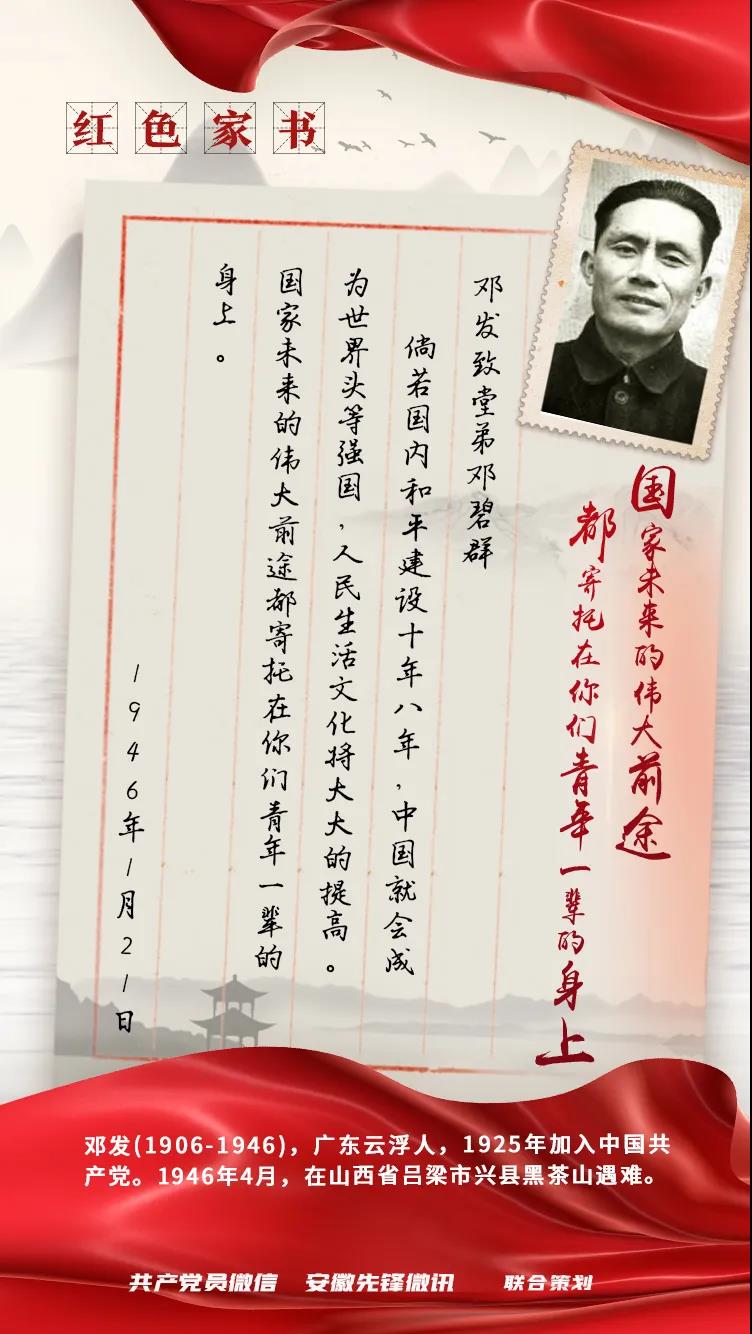 红色家书
国家未来的伟大前途
都寄托在你们青年一辈的身上
邓发致堂弟邓碧群
倘若国内和平建设十年八年，中国就会成
为世界头等强国，人民生活文化将大大的提高。
国家未来的伟大前途都寄托在你们青年一辈的
身上。
1946年1月21日
邓发(1906-1946)，广东云浮人，1925年加入中国共
产党。1946年4月，在山西省吕梁市兴县黑茶山遇难。
共产党员微信 安徽先锋微讯 联合策划